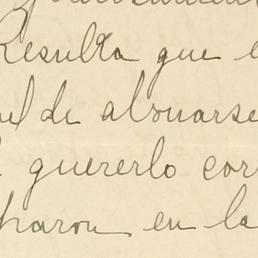 Resulta que e
el de abonarse
quererlo cor
haron en la